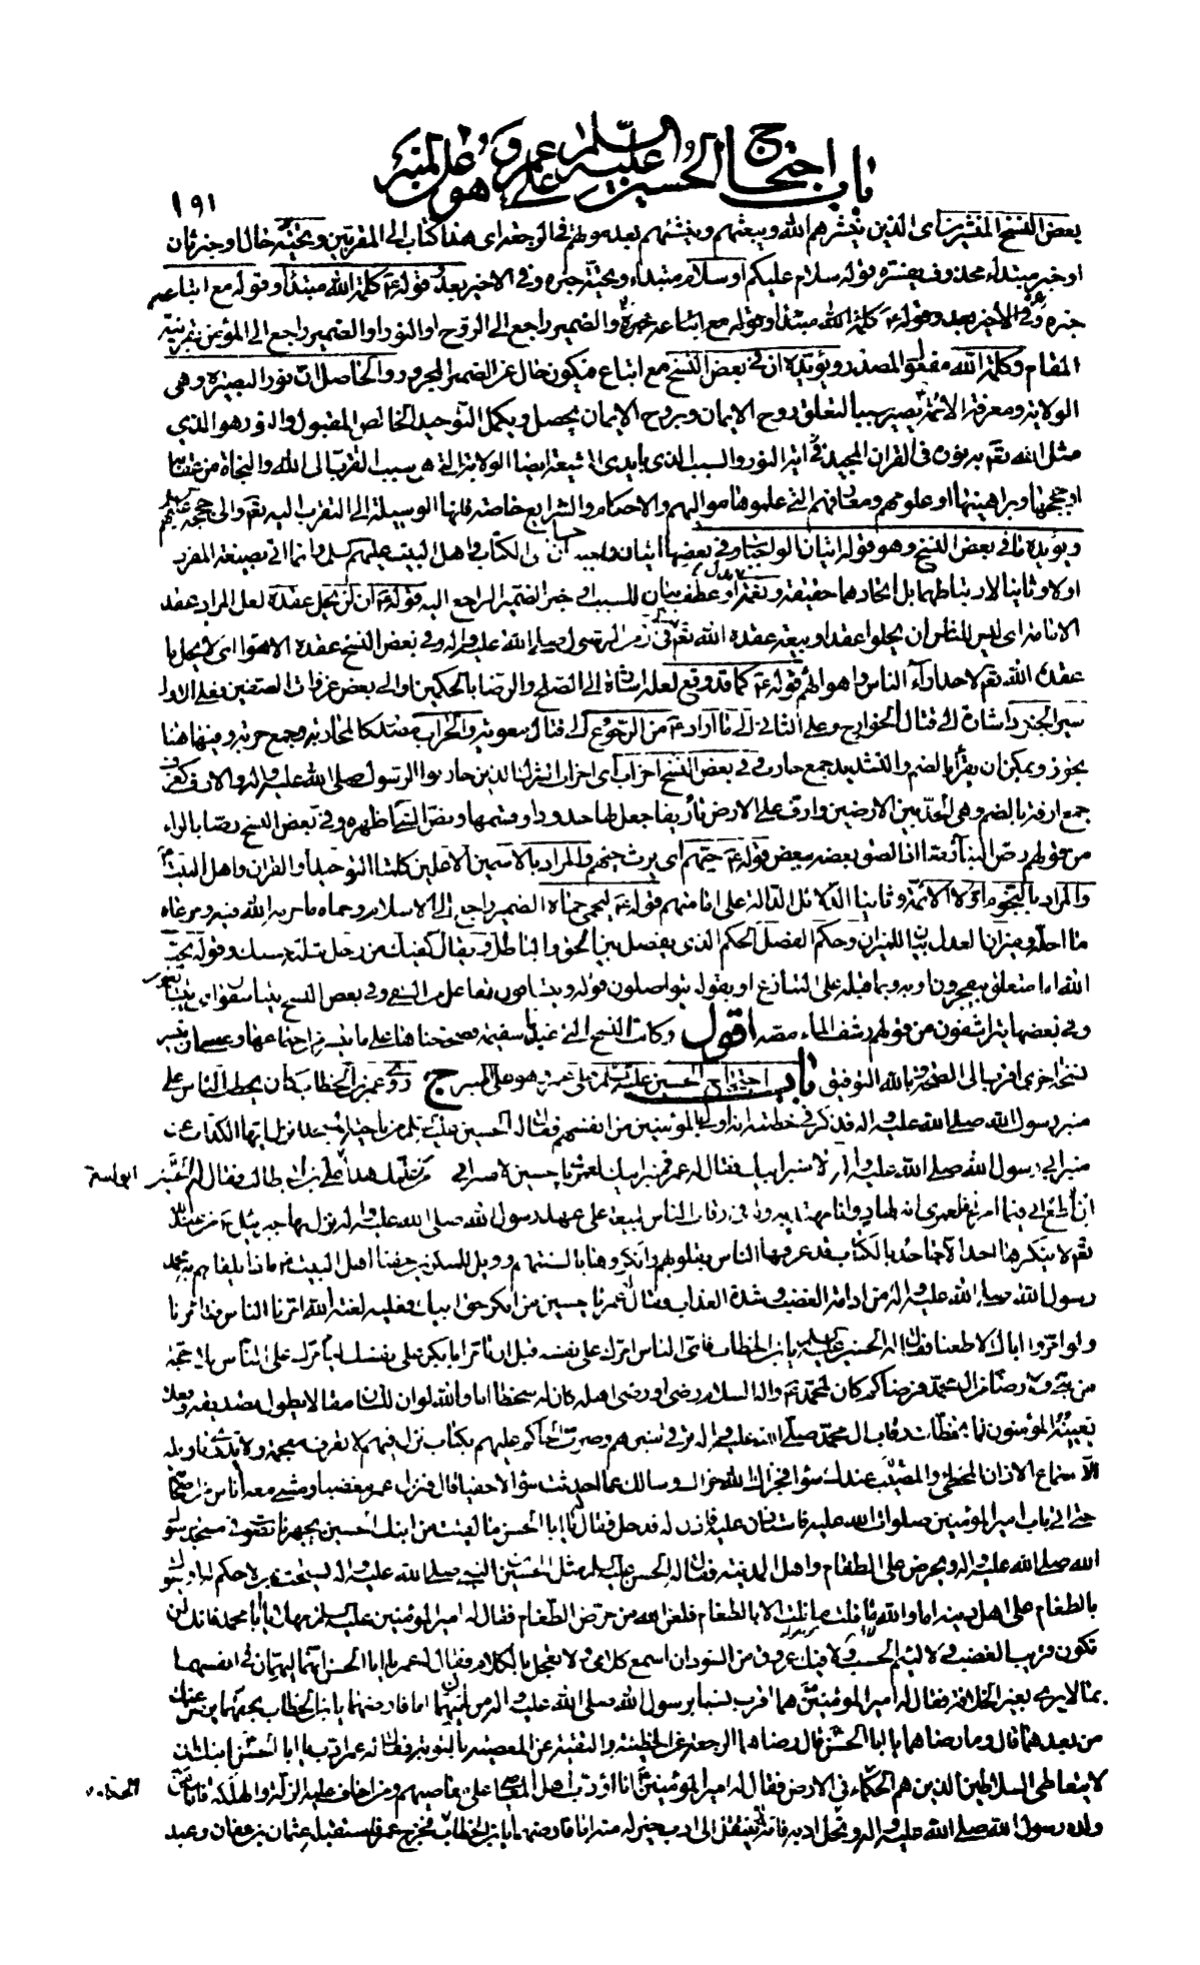 باب احتجاج الحسين عليه السلم على عمر وهو على المنبر
١٩١
بعض النسخ المنشر اى الذين ينشرهم الله ويبعثهم بعد موتهم فى الرجعة اى هذا كتاب الى المقربين ويحتمل خال او خبر ثان
او خبر مبتداء محذوف يفسره قوله سلام عليكم او سلام مبتداء خبره وفى الاخير بعد وقوله كلمة الله مبتدأ وقوله مع اتباعه
خبره وفى الاخير بعد وقوله كلمة الله مبتدأ وقوله مع اتباعه خبره والضمير راجع الى الروح او النور او الضمير راجع الى المؤمن بقرينة
المقام وكلمة الله مفعول المصدر ويؤيده ان فى بعض النسخ مع اتباع فيكون حال عن الضمير المجرور والحاصل ان نور البصيرة وهى
الولاية ومعرفة الائمة يصير سببا لتعلق روح الايمان وبروح الايمان يحصل ويكمل التوحيد الخالص المقبول والنور هو الذى
مثل الله تعم به نوره فى القران المجيد فى اية النور والسبب الذى بايدى الشيعة ايضا الولاية التى هى سبب القرب الى الله والنجاة من عقابه
او حججها وبراهينها او علومهم ومعارفهم التى علموها مواليهم والاحكام والشرايع خاصة فانها الوسيلة الى التقرب اليه تعم والى حججه عليهم
ويؤيده ما فى بعض النسخ وهو قوله اتيان الواجبات وفى بعضها اتيان واجبه الكتاب اهل البيت عليهم وانما اتى بصيغة المفرد
اولا وثانيا لارتباطهما بل اتحادهما حقيقة او عطف بيان للسبب خبر الضمير الراجع اليه قوله ان لن يحل عقده لعل المراد عقد
الامامة اى ليس للناس ان يحلوا عقدا وبيعة عقده الله تعم فى زمن الرسول صلى الله عليه واله وفى بعض النسخ عقدة الاهوا اى لن يحل ما
عقده الله تعم لاحد اراء الناس واهوائهم قوله كما قد وقع لعله اشارة الى الصلح والرضا بالحكمين او الى بعض غزوات الصفين فعلى الاول
سير الخبر اشارة الى قتال الخوارج وعلى الثانى الى ما اراد من الرجوع الى قتال معوية والحراب مصدر كالمحاربة وجمع حربة وفيهاهنا
يجوز ويمكن ان يقرأ بالضم والتشديد جمع حارب وفى بعض النسخ احزاب اى احزاب الشرك الذين حاربوا الرسول صلى الله عليه واله والارف كغرف
جمع ارفة بالضم وهى الحد بين الارضين وارف على الارض تأريفا جعل لها حدودا وقسمها ونص الشئ اظهره وفى بعض النسخ رصا بالراء
من قولهم رص البناء اذا الصق بعضه ببعض قوله حتمهم اى والمراد بالاسمين الاعلين كلمتا التوحيد او القران واهل البيت
والمراد بالنجوم اولا الائمة وثانيا الدلائل الدالة على امامتهم قوله يحمى حماه الضمير راجع الى الاسلام وحماه ما حرمه الله فيه ومرعاه
ما احله وميزان العدل بيان للميزان وحكم الفصل الحكم الذى يفصل بين الحق والباطل ويقال كفيك من رجل مثلثة حسبك وقوله بحب
الله اما متعلق بيعجرون او به وبما قبله على التنازع او بقوله يتواصلون قوله ويتساقون تفاعل من السقى وفى بعض النسخ يتناسقون اى
وفى بعضها يتراشفون من قولهم رشف الماء مصه اقول وكانت النسخ التى عندنا سقيمة فصححناها على ما تيسر من اجتماعها وعسى ان يتيسر
نسخة اخرى اقرب الى الصحة وبالله التوفيق باب احتجاج الحسين عليه السلم على عمر وهو على المنبر ج روى ان عمر بن الخطاب كان يخطب الناس على
منبر رسول الله صلى الله عليه واله فذكر فى خطبته انه اولى بالمؤمنين من انفسهم فقال له الحسين عليه السلم من ناحية المسجد انزل ايها الكذاب عن
منبر ابى رسول الله صلى الله عليه واله لا منبر ابيك فقال له عمر فمنبر ابيك لعمرى يا حسين لا منبر ابى من علمك هذا على بن ابى طالب فقال له
ان اطع ابى فيما امرنى فلعمرى انه لهاد وانا مهتد به وله فى رقاب الناس البيعة على عهد رسول الله صلى الله عليه واله نزل بها جبرئيل من عند الله
تعم لا ينكرها احد الا جاحد بالكتاب قد عرفها الناس بقلوبهم وانكروها بالسنتهم وويل للمنكرين حقنا اهل البيت ماذا يلقاهم به محمد
رسول الله صلى الله عليه واله من ادامة الغضب وشدة العذاب فقال عمر يا حسين من انكر حق ابيك فعليه لعنة الله امرنا الناس فتامرنا
ولو امروا اباك لاطعنا فقال له الحسين عليه السلم يا بن الخطاب فاى الناس امرك على نفسه قبل ان تؤمر ابا بكر على نفسك ليؤمرك على الناس بلا حجة
من نبى ولا رضا من ال محمد فرضاكم كان لمحمد واله السلام رضى او رضى اهله كان له سخطا اما والله لو ان للسان مقالا يطول تصديقه وفعلا
يعينه المؤمنون لما تخطات رقاب ال محمد صلى الله عليه واله ترقى منبرهم وصرت الحاكم عليهم بكتاب نزل فيهم لا تعرف معجمه ولا تدرى تاويله
الا سماع الاذان المخطئ والمصيب عندك سواء فجزاك الله جزاك وسالك عما احدثت سؤالا حفيا قال فنزل عمر مغضبا ومشى معه اناس من اصحابه
حتى اتى باب امير المؤمنين صلوات الله عليه فاستاذن عليه فاذن له فدخل فقال يا ابا الحسن ما لقيت من ابنك الحسين يجهرنا بصوت فى مسجد رسول
الله صلى الله عليه واله ويحرض على الطغام واهل المدينة فقال له الحسن عليه السلم مثل الحسين ابن النبى صلى الله عليه واله يستحث بمن لا حكم له او يقول
بالطغام على اهل دينه اما والله ما نلت ما نلت الا بالطغام فلعن الله من حرض الطغام فقال له امير المؤمنين عليه السلم مهلا يا ابا محمد فانك لن
تكون قريب الغضب ولا لئيم الحسب ولا فيك عروق من السودان اسمع كلامى ولا تعجل بالكلام فقال له عمر يا ابا الحسن انهما ليهمان فى انفسهما
بما لا يرى بغير الخلافة فقال له امير المؤمنين هما اقرب نسبا برسول الله صلى الله عليه واله من ان يهما اما فارضهما يا بن الخطاب بحقهما يرض عنك
من بعدهما قال وما رضاهما يا ابا الحسن قال رضاهما الرجعة عن الخطيئة والتقية عن المعصية بالتوبة فقال له عمر ادب يا ابا الحسن ابنك ان
لا يتعاطى السلاطين الذين هم الحكماء فى الارض فقال له امير المؤمنين انا اؤدب اهل المعاصى على معاصيهم ومن اخاف عليه الزلة والهلكة فاما من
والده رسول الله صلى الله عليه واله ونحل ادبه فانه لا ينتقل الى ادب خير له منه اما فارضهما يا بن الخطاب فخرج عمر فاستقبله عثمان بن عفان وعبد